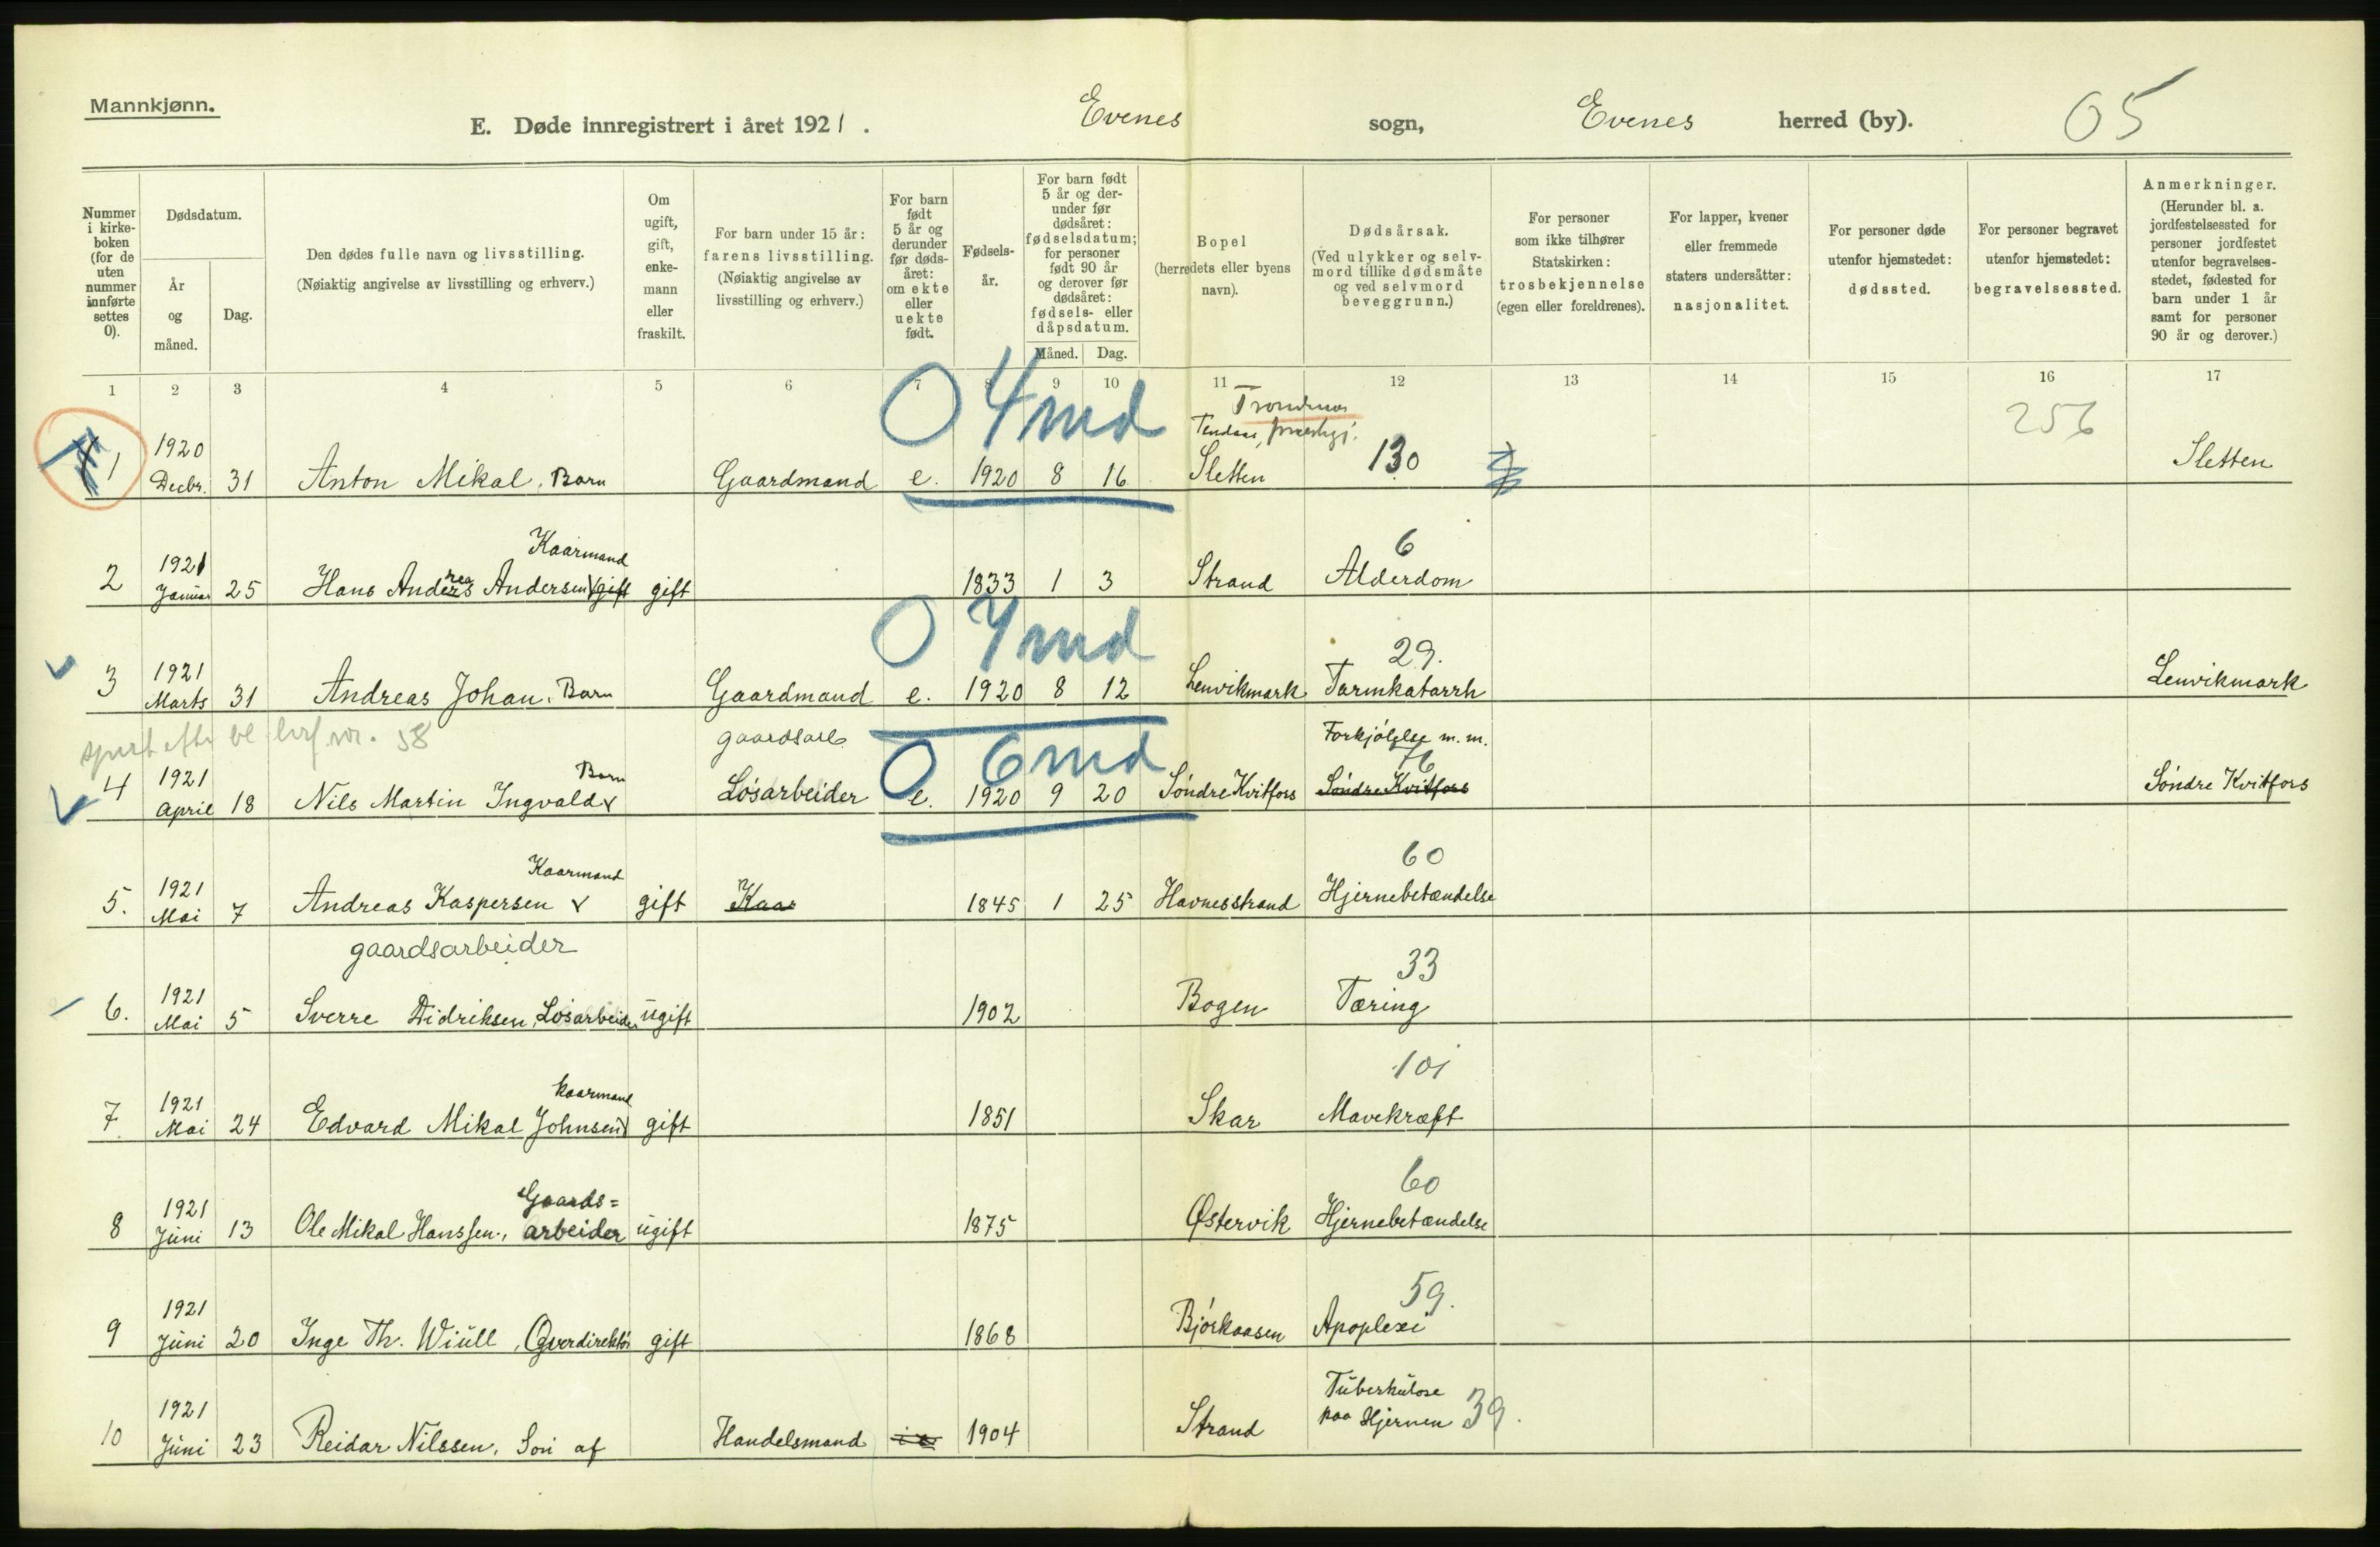 Mannkjønn.
E. Døde innregistrert i året 1921. Evenes sogn, Evenes herred (by). 05
Nummer i kirkeboken (for de uten nummer innførte settes 0).
Dødsdatum.
År og måned.
Dag.
Den dødes fulle navn og livsstilling.
(Nøiaktig angivelse av livsstilling og erhverv.)
Om ugift, gift, enkemann eller fraskilt.
For barn under 15 år: farens livsstilling.
(Nøiaktig angivelse av livsstilling og erhverv.)
For barn født 5 år og derunder før dødsåret: om ekte eller uekte født.
Fødselsår.
For barn født 5 år og derunder før dødsåret: fødselsdatum; for personer født 90 år og derover før dødsåret: fødsels- eller dåpsdatum.
Måned. Dag.
Bopel (herredets eller byens navn).
Dødsårsak.
(Ved ulykker og selvmord tillike dødsmåte og ved selvmord beveggrunn.)
For personer som ikke tilhører Statskirken: trosbekjennelse (egen eller foreldrenes).
For lapper, kvener eller fremmede staters undersåtter: nasjonalitet.
For personer døde utenfor hjemstedet: dødssted.
For personer begravet utenfor hjemstedet: begravelsessted.
Anmerkninger.
(Herunder bl. a. jordfestelsessted for personer jordfestet utenfor begravelsesstedet, fødested for barn under 1 år samt for personer 90 år og derover.)
1 2 3 4 5 6 7 8 9 10 11 12 13 14 15 16 17
0 4 md Trondenes 256
1 1920 Decbr. 31 Anton Mikal, Barn Gaardmand e. 1920 8 16 Sletten 130 Sletten
Kaarmand 6
2 1921 Januar 25 Hans Andreas Andersen gift gift 1833 1 3 Strand Alderdom
0 7 md 29.
3 1921 Marts 31 Andreas Johan, Barn Gaardmand e. 1920 8 12 Lenvikmark Tarmkatarrh Lenvikmark
58 gaardsarb. Forkjølelse m. m.
0 6 md 76
4 1921 April 18 Nils Martin Ingvald Barn Løsarbeider e. 1920 9 20 Søndre Kvitfors Søndre Kvitfors Søndre Kvitfors
Kaarmand 60
5. 1921 Mai 7 Andreas Kaspersen gift Kaar 1845 1 25 Havnesstrand Hjernebetændelse
gaardsarbeider 33
6. 1921 Mai 5 Sverre Didriksen, Løsarbeider ugift 1902 Bogen Tæring
kaarmand 101
7 1921 Mai 24 Edvard Mikal Johnsen gift 1851 Skar Mavekræft
Gaards= 60
8 1921 Juni 13 Ole Mikal Hanssen, arbeider ugift 1875 Østervik Hjernebetændelse
59.
9 1921 Juni 20 Inge Th. Wiull, Overdirektør gift 1868 Bjørkaasen Apoplexi
Tuberkulose
10 1921 Juni 23 Reidar Nilssen, Søn af Handelsmand 1904 Strand paa Hjernen 39.